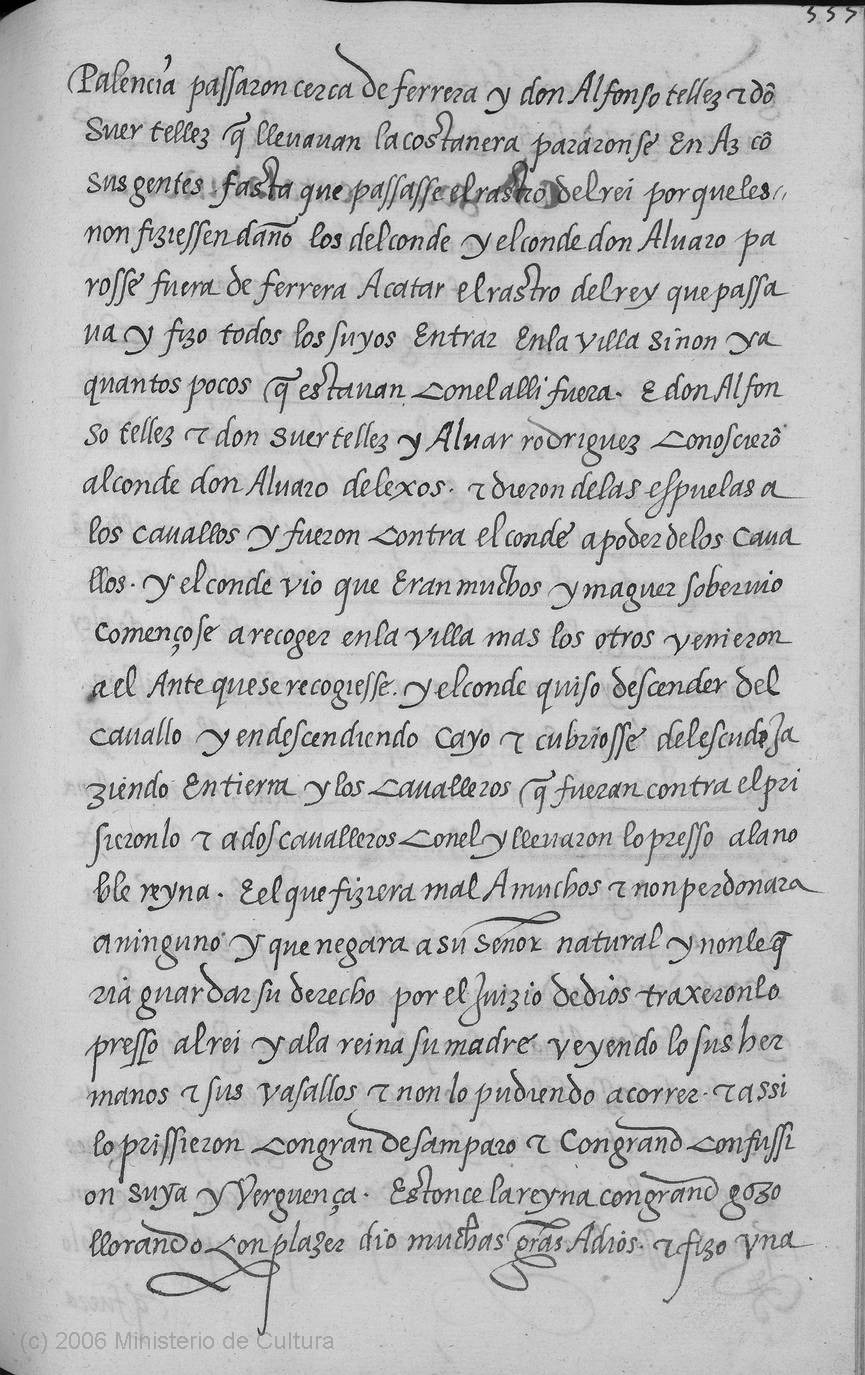 335
Palencia passaron cerca de ferrera y don Alfonso tellez τ dõ
Suer tellez q̃ llevavan la costanera pararonse En Az cõ
Sus gentes fasta que passasse el rastro del rei por que les
non fiziessen daño los del conde y el conde don Alvaro pa
rosse fuera de ferrera A catar el rastro del rey que passa
va y fizo todos los suyos Entrar En la villa sinon ya
quantos pocos q̃ estavan con el alli fuera. E don Alfon
so tellez τ don suer tellez y Alvar rodriguez conoscierõ
al conde don Alvaro de lexos. τ dieron de las espuelas a
los cavallos y fueron contra el conde a poder de los cava
llos. y el conde vio que Eran muchos y maguer sobervio
començose a recoger en la villa mas los otros venieron
a el Ante que se recogiesse. y el conde quiso descender del
cavallo y en descendiendo cayo τ cubriosse del escudo Ja
ziendo En tierra y los cavalleros q̃ fueran contra el pri
sieronlo τ a dos cavalleros con el y llevaron lo presso a la no
ble reyna. E el que fiziera mal A muchos τ non perdonara
a ninguno y que negara a su señor natural y non le q̃
ria guardar su derecho por el Juizio de dios traxeronlo
presso al rei y a la reina su madre veyendo lo sus her
manos τ sus vasallos τ non lo pudiendo acorrer. τ assi
lo prissieron con gran desamparo τ con grand confussi
on suya y verguença. Estonce la reyna con grand gozo
llorando con plazer dio muchas grãs A dios. τ fizo vna
(c) 2006 Ministerio de Cultura